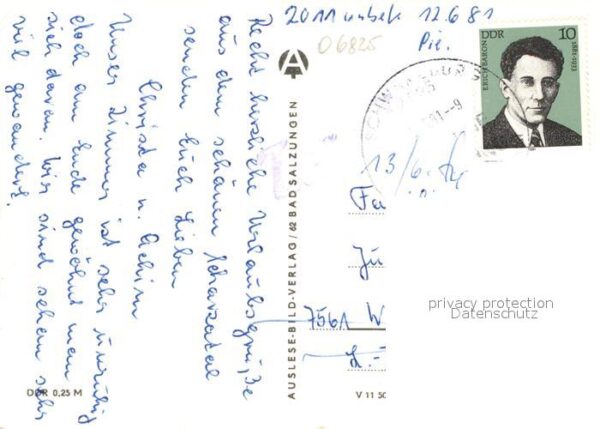 12.6.81
Pie.
06825
Recht herzliche Urlaubsgrüße
aus dem schönen Schwarzatal
senden Euch Lieben
Christa u. Achim
Unser Zimmer ist sehr unruhig
doch am Ende gewöhnt man
sich daran. Wir sind schon sehr
viel gewandert.
AUSLESE-BILD-VERLAG/62 BAD SALZUNGEN
DDR 10
ERICH BARON
1881-1933
13/6.
Fa
Ju
756A W
privacy protection
Datenschutz
DDR 0,25 M
V 11 50